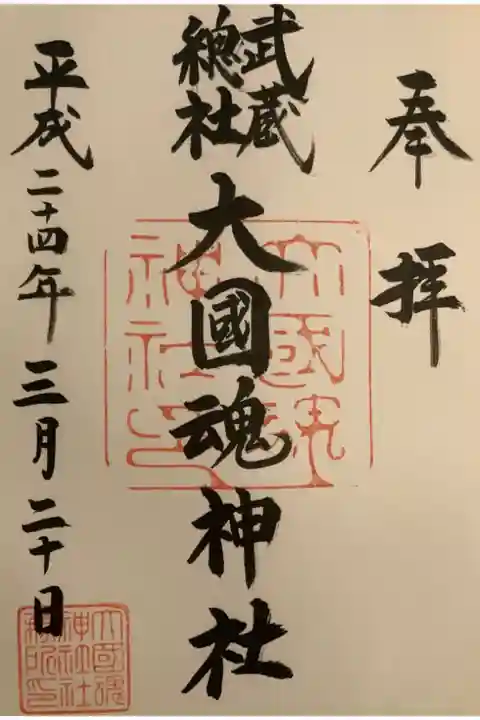 奉拝
武蔵
總社
大國魂神社
大國魂
神社印
平成二十四年三月二十日
大國魂
神社社